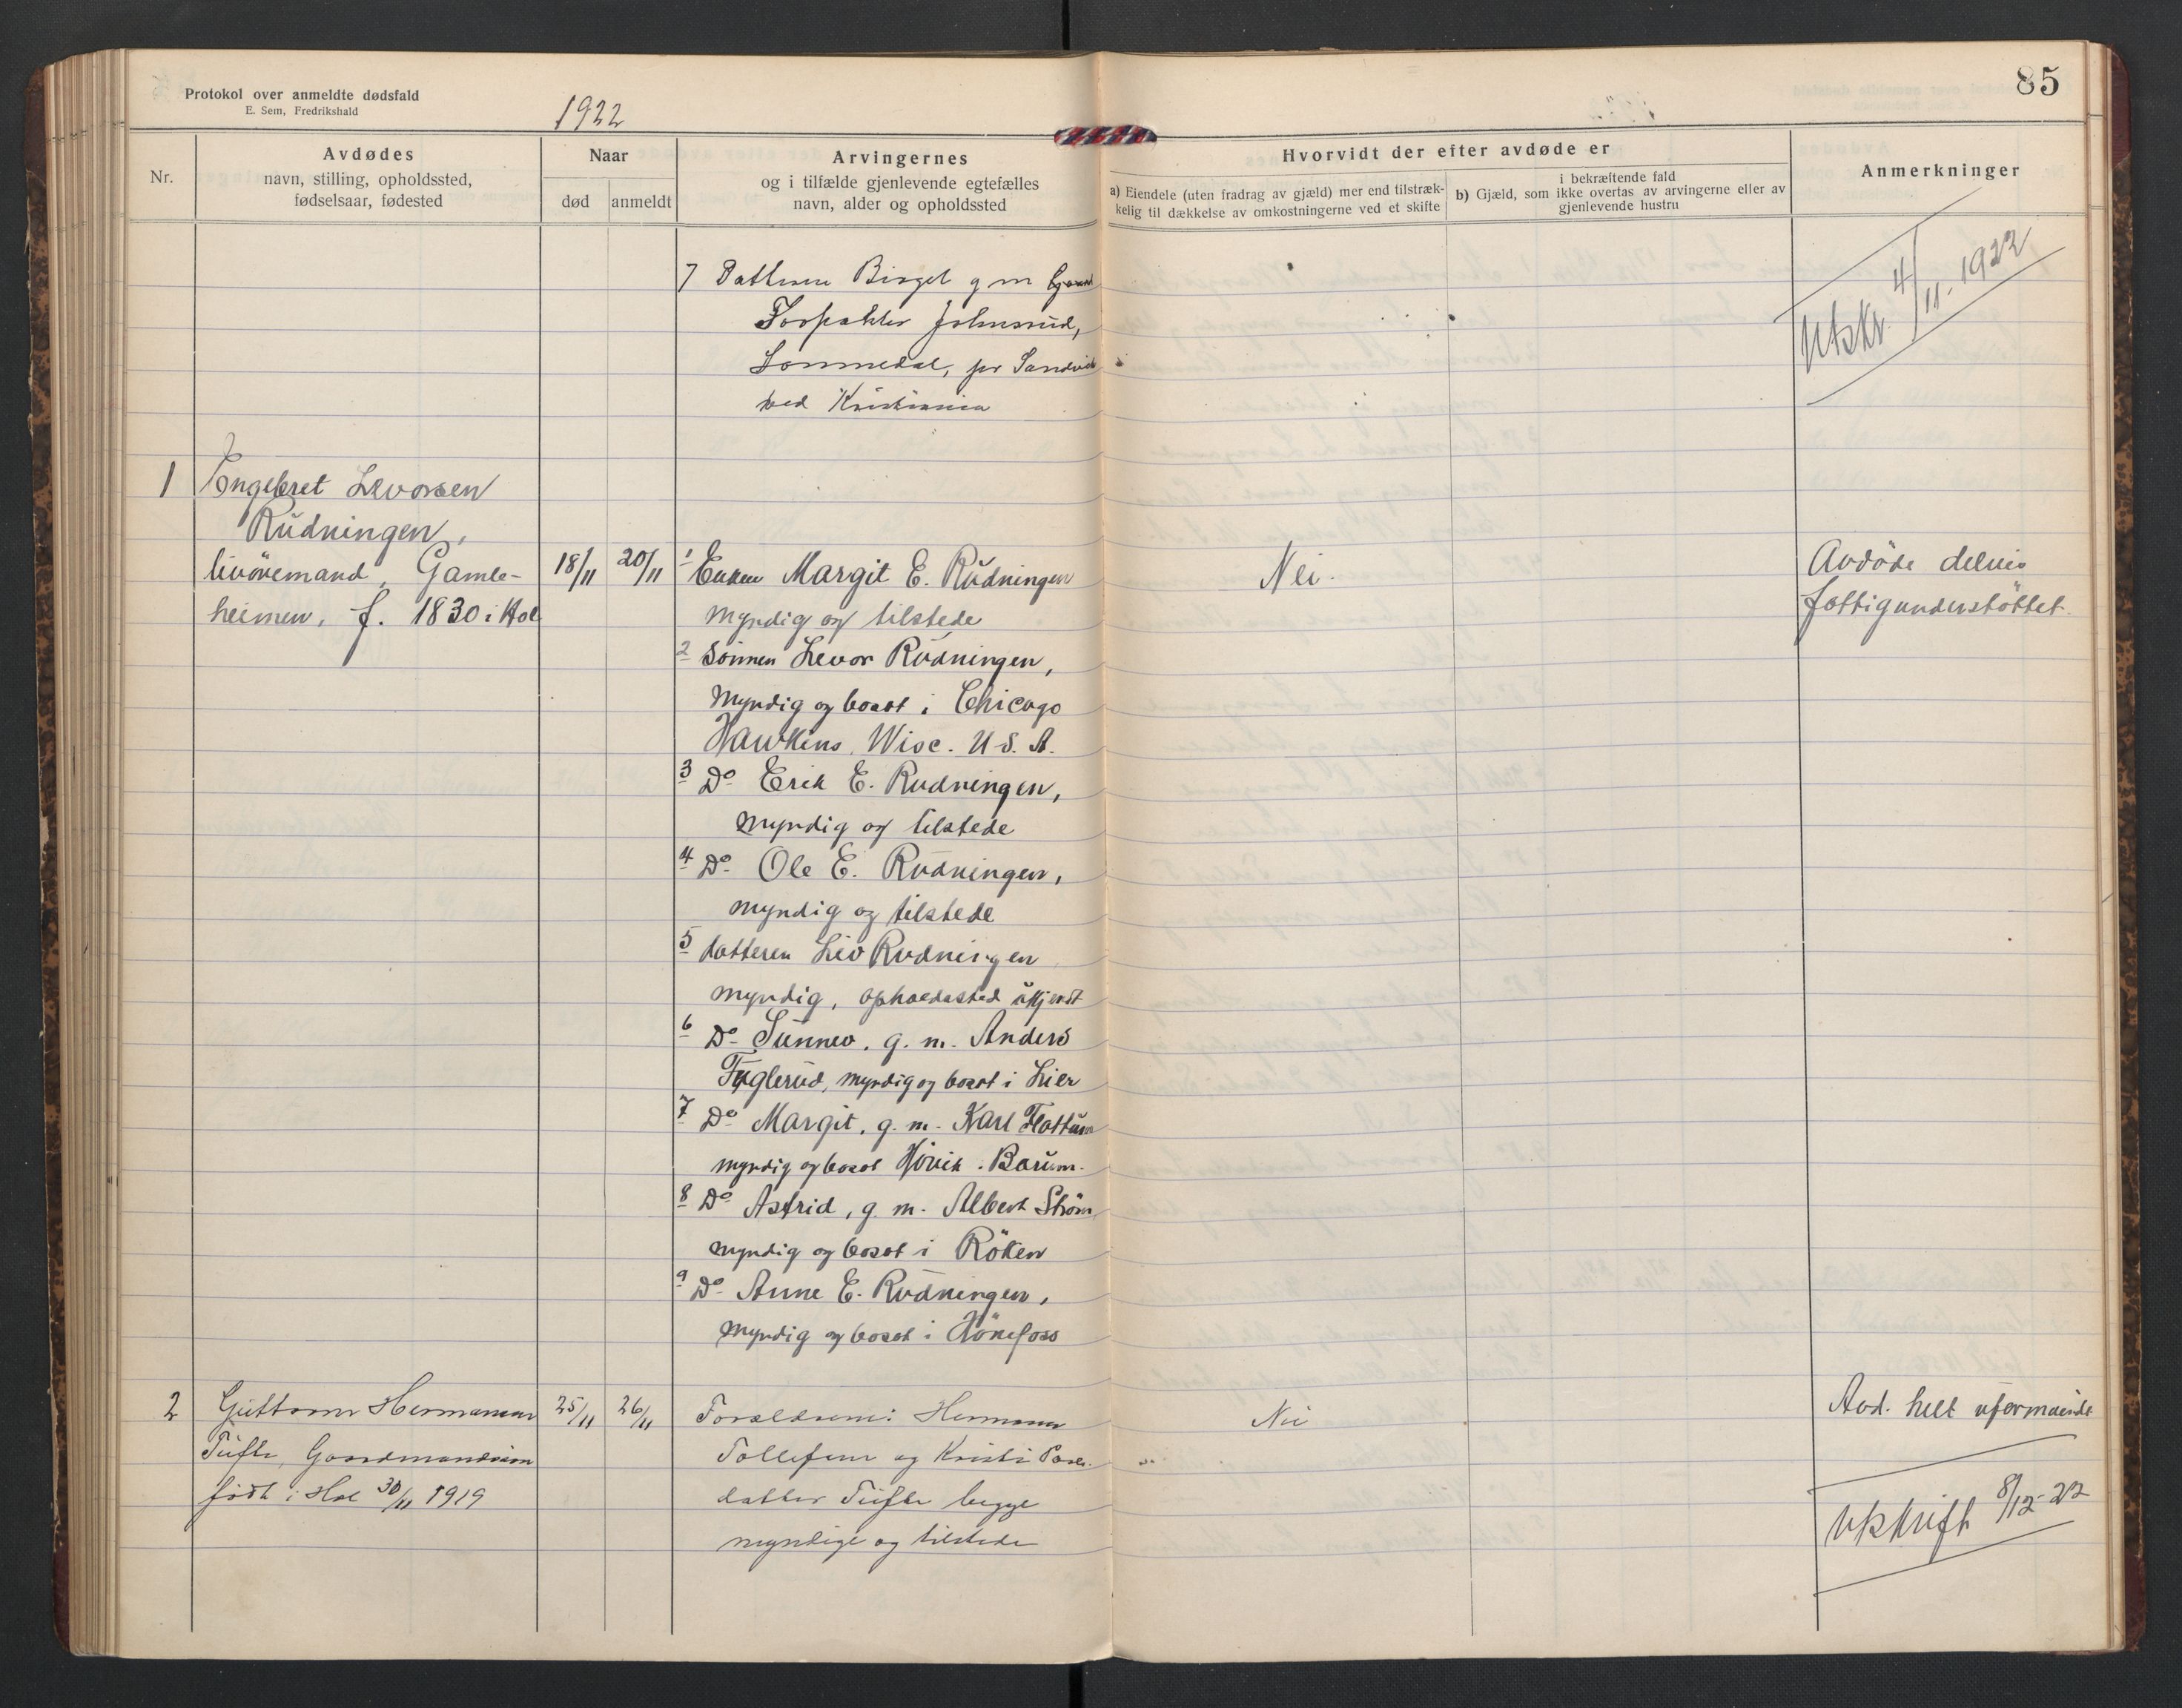 85
Protokol over anmeldte dødsfald
E. Sem, Fredrikshald
1922
Nr.
Avdødes
navn, stilling, opholdssted,
fødselsaar, fødested
Naar
død
anmeldt
Arvingernes
og i tilfælde gjenlevende egtefælles
navn, alder og opholdssted
Hvorvidt der efter avdøde er
a) Eiendele (uten fradrag av gjæld) mer end tilstræk-
kelig til dækkelse av omkostningerne ved et skifte
i bekræftende fald
b) Gjæld, som ikke overtas av arvingerne eller av
gjenlevende hustru
Anmerkninger
7 Datteren Birget g m
Forpakter Johnsrud,
Lommedal, pr Sandvik
ved Kristiania
Utskr. 4/11-1922
1
Engebret Levorsen
Rudningen,
livöremand, Gamle-
heimen, f. 1830 i Hol
18/11
20/11
1 Enken Margit E. Rudningen
myndig og tilstede
2 Sönnen Levor Rudningen,
Myndig og bosat i Chicago
Hawkins, Wisc. U.S.A.
3 Do Erik E. Rudningen,
myndig og tilstede
4 Do Ole E. Rudningen,
myndig og tilstede
5 datteren Liv Rudningen
myndig, opholdssted ukjendt
6 Do Sunnev, g. m. Anders
Fuglerud, myndig og bosat i Lier
7 Do Margit, g. m. Karl Flattum
myndig og bosat Hövik. Barum.
8 Do Astrid, g. m. Albert Ström
myndig og bosat i Röken
9 Do Anne E. Rudningen,
Myndig og bosat i Hönefoss
Nei.
Avdöde delvis
fattigunderstöttet.
2
Guttorm Hermansen
Tufte, Gaardmandssön
födt i Hol 30/11 1919
25/11
26/11
Forældrene: Hermann
Tollefsen og Kristi
datter Tufte begge
myndige og tilstede
Nei
Avd. helt uformuende
Utskrift 8/12-22